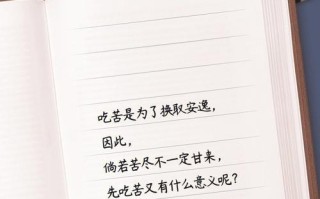 吃苦是为了换取安逸，
因此，
倘若苦尽不一定甘来，
先吃苦又有什么意义呢？